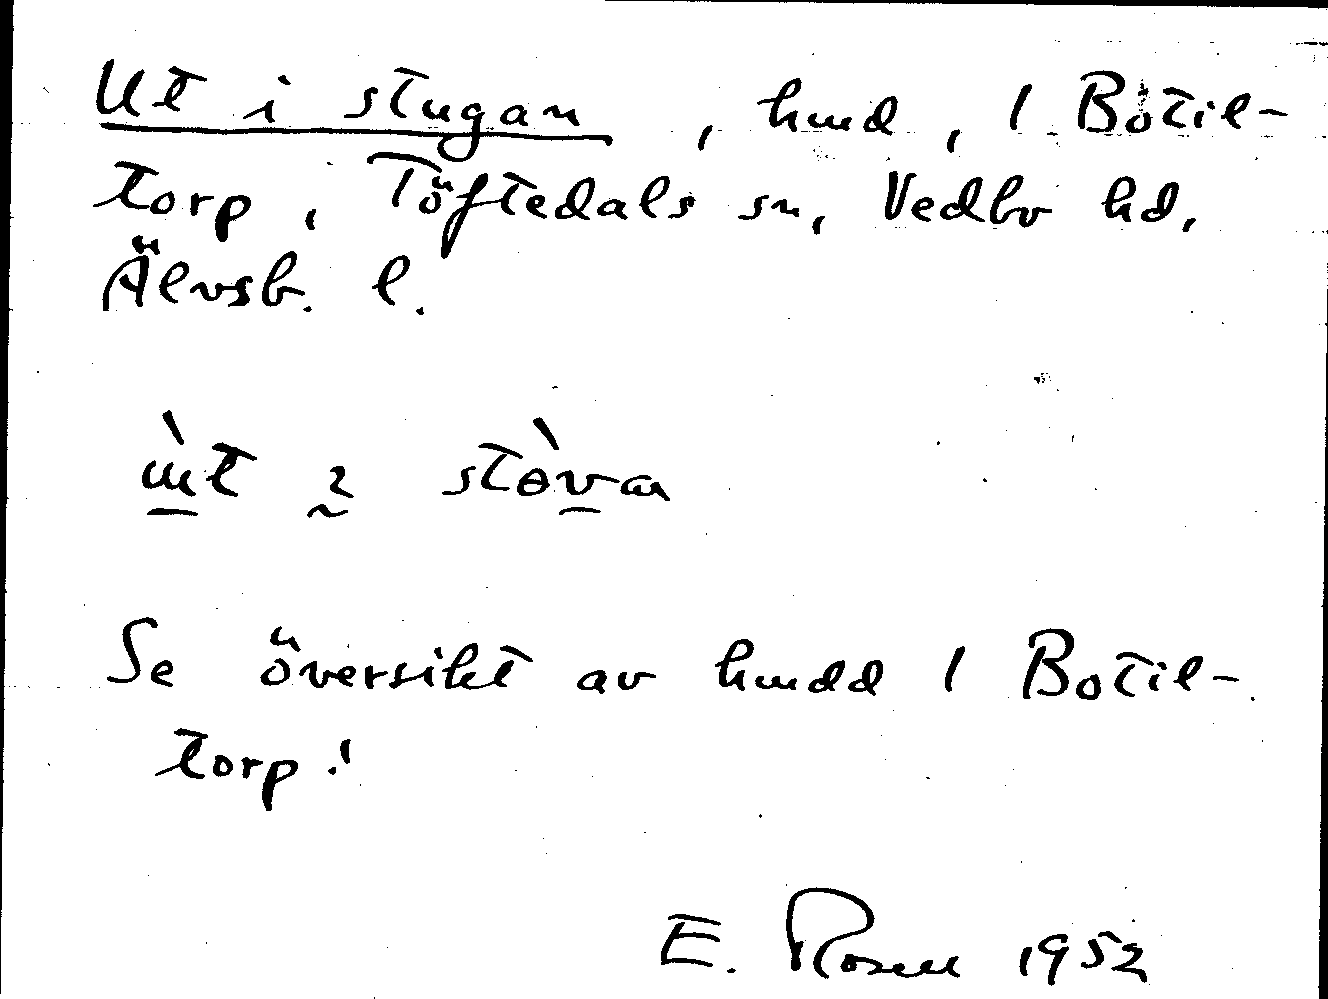 Ut i stugan, hmd, 1 Botil-
torp, Töftedals sn, Vedbo hd,
Älvsb. l.
ùt 2 stòvan
Se översikt av hmdd 1 Botil-
torp!
E. Rosell 1952